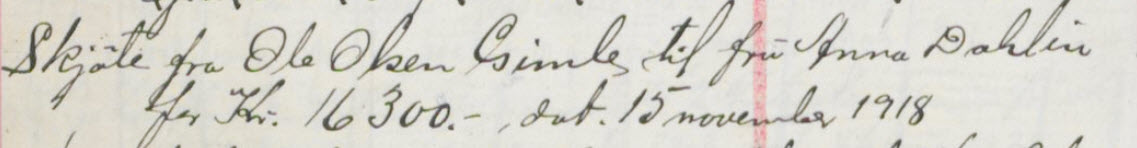 Skjöte fra Ole Olsen Gimle, til frü Anna Dahlin
for Kr. 16 300.-, dat. 15 november 1918